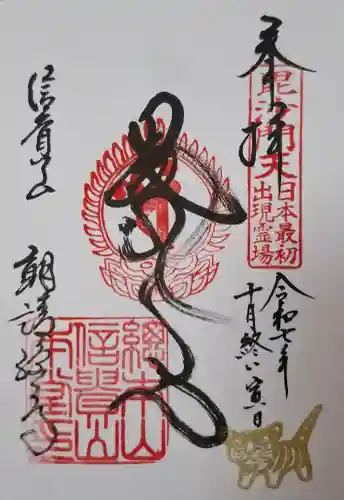 奉拝
毘沙門天
日本最初
出現霊場
令和七年
十月終い寅日
信貴山
朝護孫子寺
総本山
信貴山